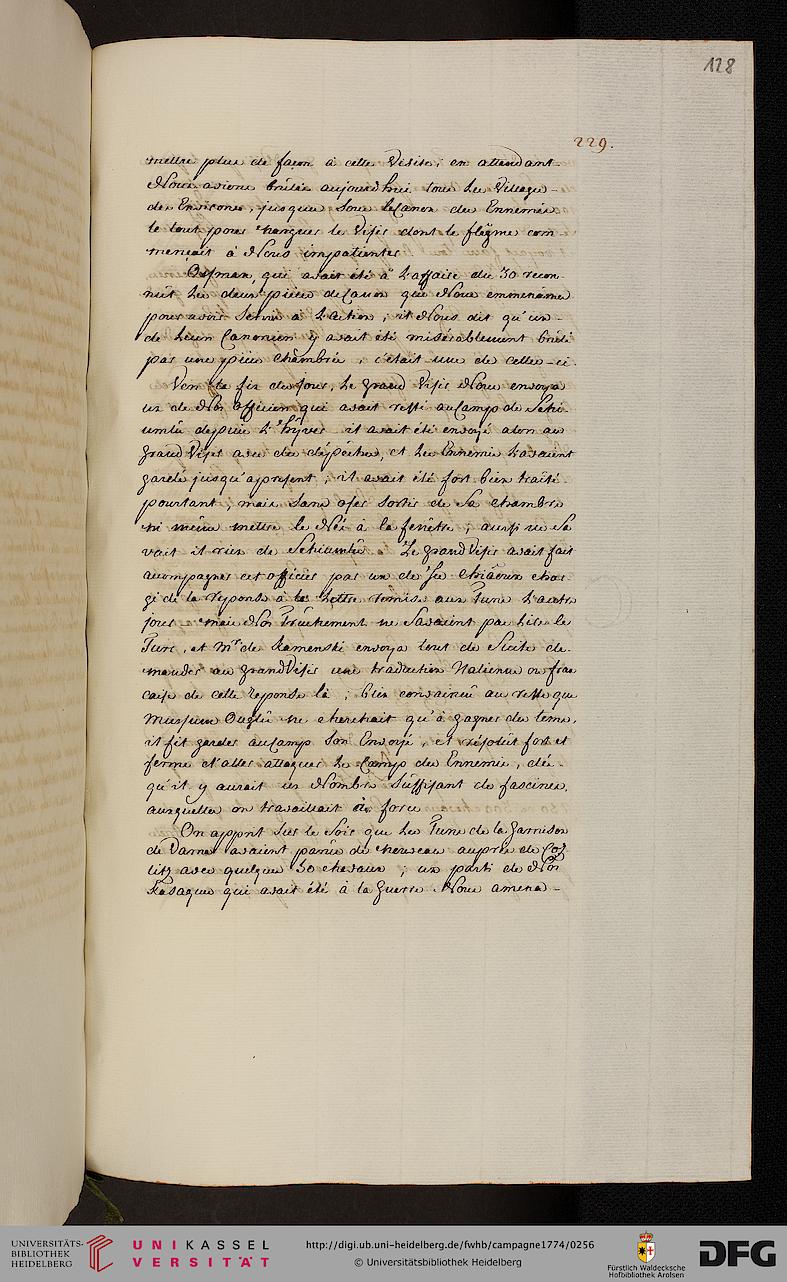 128
229.
mettre plus de façon à cette Visite; en attendant
Nous avions brulés aujourdhui tous les Villages
des Environs, jusques sous le Canon des Ennemis
le tout pour narguer le Visir dont le flegme com-
mençait à Nous impatienter
Osman, qui avait été à l'affaire du 30 recon-
nût les deux pièces de Canon que Nous emmenames
pour avoir Servi à l'action; il Nous dit qu'un
de leurs Canoniers y avait été misérablement brulé
par une pièce chambrée, c'était une de celles-ci.
Vers la fin du jour, le grand Visir Nous envoya
un de Nos Officiers qui avait resté au Camp de Schi-
umla depuis l'hyver il avait été envoyé alors au
grand Visir avec des dépêches, et les Ennemis l'avaient
gardé jusqu'apresent; il avait été fort bien traité
pourtant, mais sans oser sortir de Sa chambre
ni même mettre le Néz à la fenêtre; aussi ne Sa
vait il rien de Schiumla. Le grand Visir avait fait
accompagner cet officier par un de Ses Chiaoux char-
gé de la reponse à la Lettre remise aux Turcs l'autre
jour mais Nos Truchement ne Savaient pas lire le
Turc, et Mr de Kamenski envoya tout de Suite de-
mander au grand Visir une traduction Italienne ou fran
caise de cette reponse là; bien convaincu au reste que
Mussum Ouglû ne cherchait qu'à gagner du tems,
il fit garder au Camp Son Envoyé, et résolut fort et
ferme d'aller attaquer le Camp des Ennemis, dès
qu'il y aurait un Nombre Suffisant de fascines,
auxquelles on travaillait à force
On apprit Sur le Soir que les Turcs de la garnison
de Varna avaient parûs de nouveau auprès de Cos
litz avec quelques 30 chevaux; un parti de Nos
Kosaques qui avait été à la guerre Nous amena-
UNIVERSITÄTS-
BIBLIOTHEK
HEIDELBERG
UNIKASSEL
VERSITÄT
http://digi.ub.uni-heidelberg.de/fwhb/campagne1774/0256
© Universitätsbibliothek Heidelberg
Fürstlich Waldecksche
Hofbibliothek Arolsen
DFG